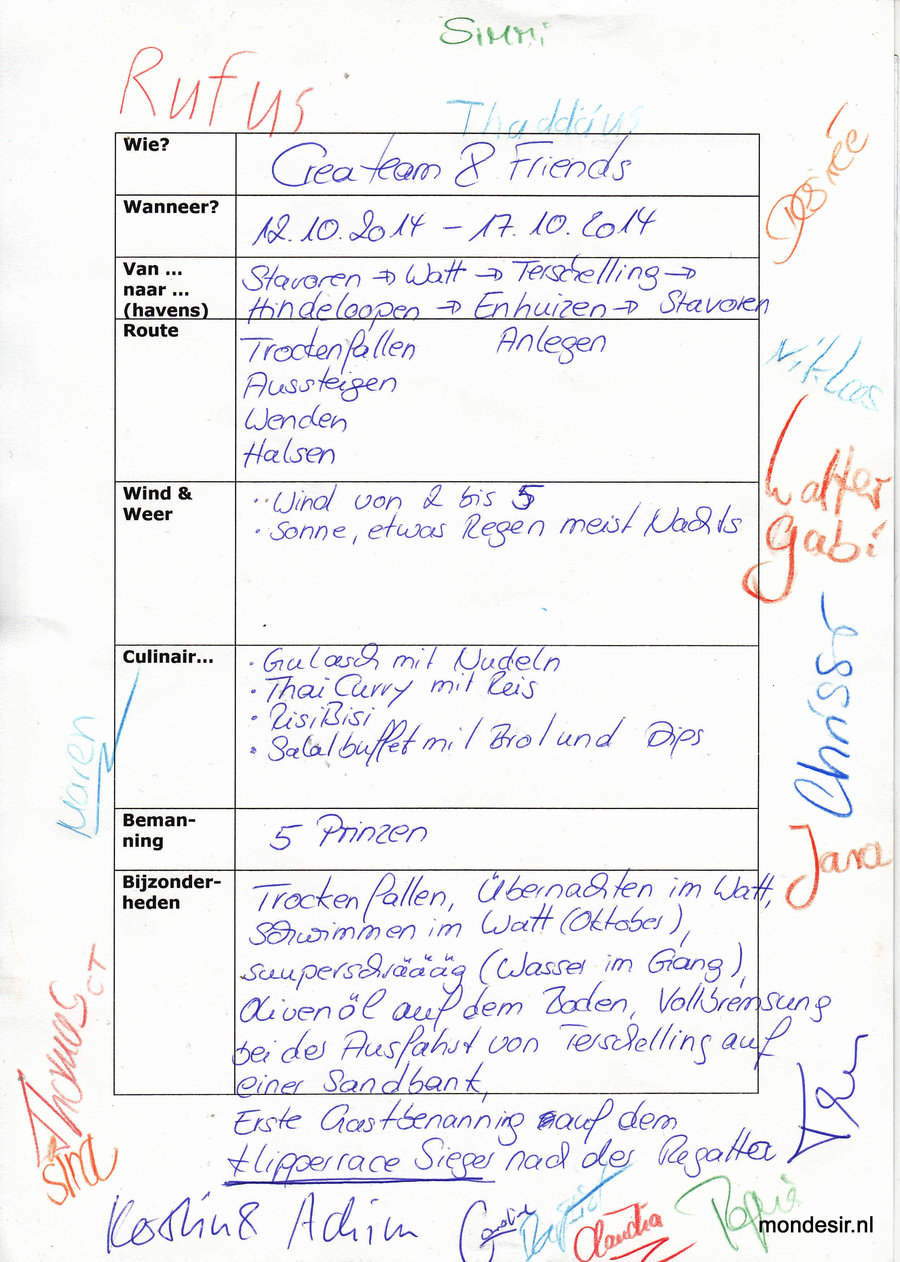 Simmi
Rufus
Thaddäus
Desirée
Wie?
Createam & Friends
Wanneer?
12.10.2014 – 17.10.2014
Van ...
naar ...
(havens)
Stavoren → Watt → Terschelling →
Hindeloopen → Enhuizen → Stavoren
Route
Trockenfallen Anlegen
Aussteigen
Wenden
Halsen
Niklas
Walter
Gabi
Wind &
Weer
·· Wind von 2 bis 5
· Sonne, etwas Regen meist Nachts
Chrisso
Culinair...
· Gulasch mit Nudeln
· Thai Curry mit Reis
· RisiBisi
· Salatbuffet mit Brot und Dips
Maren
Jana
Beman-
ning
5 Prinzen
Bijzonder-
heden
Trockenfallen, Übernachten im Watt,
Schwimmen im Watt (Oktober),
suuperschräääg (Wasser im Gang),
Olivenöl auf dem Boden, Vollbremsung
bei der Ausfahrt von Terschelling auf
einer Sandbank,
Erste Gastbenanning auf dem
Klipperrace Sieger nach der Regatter
Thomas
CT
Sina
Achim
Caroline
Claudia
mondesir.nl